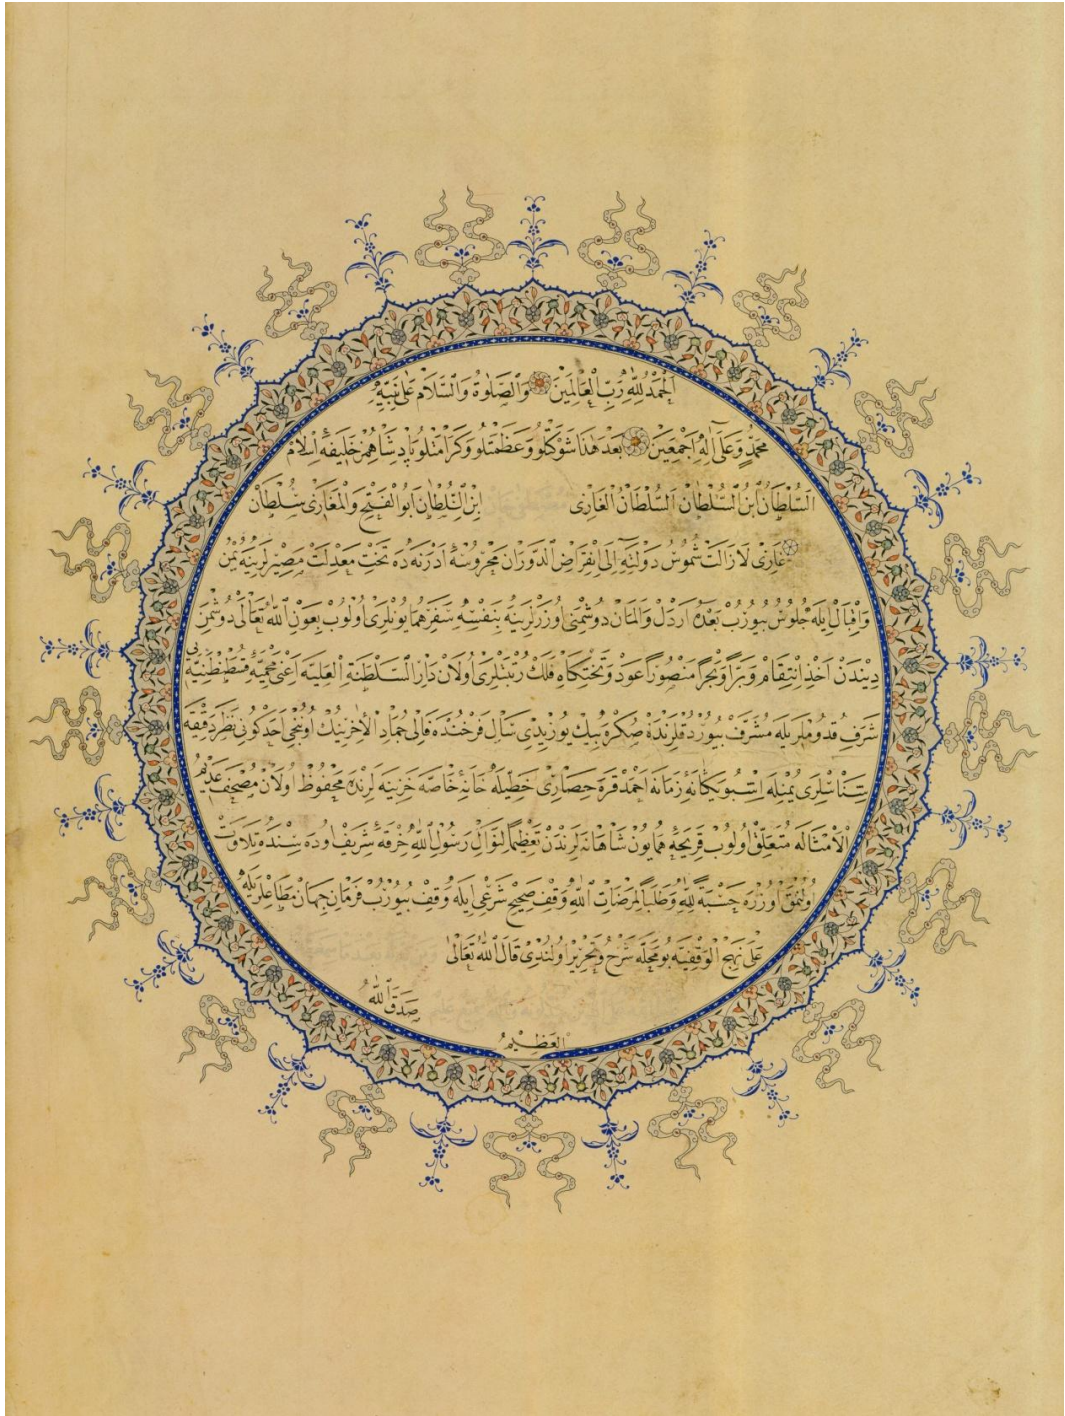 اَلْحَمْدُ لِلّٰهِ رَبِّ الْعَالَمِينَ وَالصَّلٰوةُ وَالسَّلَامُ عَلٰى نَبِيِّهِ
مُحَمَّدٍ وَعَلٰٓى اٰلِهِ اَجْمَعِينَ بَعْدَ هٰذَا شَوْكَتْلُو وَعَظَمَتْلُو وَكَرَامَتْلُو پَادِشَاهُمْز خَلِيفَهٔ اِسْلَام
اَلسُّلْطَانُ بْنُ السُّلْطَان اَلسُّلْطَانُ الْغَازِى اِبْنِ السُّلْطَان اَبُو الْفَتْحِ وَالْمَغَازِى سُلْطَانْ
غَازِى لَازَالَتْ شُمُوسُ دَوْلَتِهِ اِلٰى اِنْقِرَاضِ الدَّوَرَان مَحْرُوسَهٔ اَدِرْنَه دَه تَخْتِ مَعْدِلَتْ مَصِيرْلَرِينَه يُمْن
وَاِقْبَالْ اِيلَه جُلُوسْ بُيُورُبْ بَعْدَهُ اَرْدَلْ وَاَلْمَانْ دُوشْمَنِى اُوزَرْلَرِينَه بِنَفْسِهِ سَفَرِ هُمَايُونْلَرِى اُولُوبْ بِعَوْنِ اللّٰهِ تَعَالٰى دُوشْمَنِ
دِيندَنْ اَخْذِ اِنْتِقَامْ وَبَرًّا وَبَحْرًا مَنْصُورًا عَوْدْ وَتَخْتِكَاهِ فَلَكْ رُتْبَتْلَرِى اُولَانْ دَارُ السَّلْطَنَةِ الْعَلِيَّه اَعْنِى مَحْمِيَّهٔ قُسْطَنْطِنِيَّه يِى
شَرَفِ قُدُومْلَرِيلَه مُشَرَّفْ بُيُورْدُقْلَرِنْدَه صِكْرَه بِيكْ يُوز يَدِى سَالِ فَرْخُنْدَه فَالِى جُمَادِ الْاٰخِرِنِكْ اُونُنْجِى اَحَدْ كُونِى نَظَرِ دَقِيقَه
شِنَاسْلَرِى يُمْنِيلَه اِشْبُو يَكَانَهٔ زَمَانَه اَحْمَدْ قَرَه حِصَارِى خَطِّيلَه خَانَهٔ خَاصَّه خَزِينَه لَرِنْدَه مَحْفُوظْ اُولَانْ مُصْحَفِ عَدِيمُ
الْاَمْثَالَه مُتَعَلِّقْ اُولُوبْ قَرِيحَهٔ هُمَايُونْ شَاهَانَه لَرِنْدَنْ تَعْظِيمًا لِنَوَالِ رَسُولِ اللّٰهِ خِرْقَهٔ شَرِيفْ اُودَه سِنْدَه تِلَاوَتْ
اُولُنْمَقْ اُوزْرَه حِسْبَةً لِلّٰهِ وَطَلَبًا لِمَرْضَاتِ اللّٰهِ وَقْفِ صَحِيحِ شَرْعِى اِيلَه وَقْفْ بُيُورُبْ فَرْمَانِ جِهَانْ مُطَاعْلَرِيلَه
عَلٰى نَهْجِ الْوَقْفِيَّه بُو مَحَلَّه شَرْحْ وَتَحْرِيرْ اُولُنْدِى قَالَ اللّٰهُ تَعَالٰى
صَدَقَ اللّٰهُ
الْعَظِيمُ